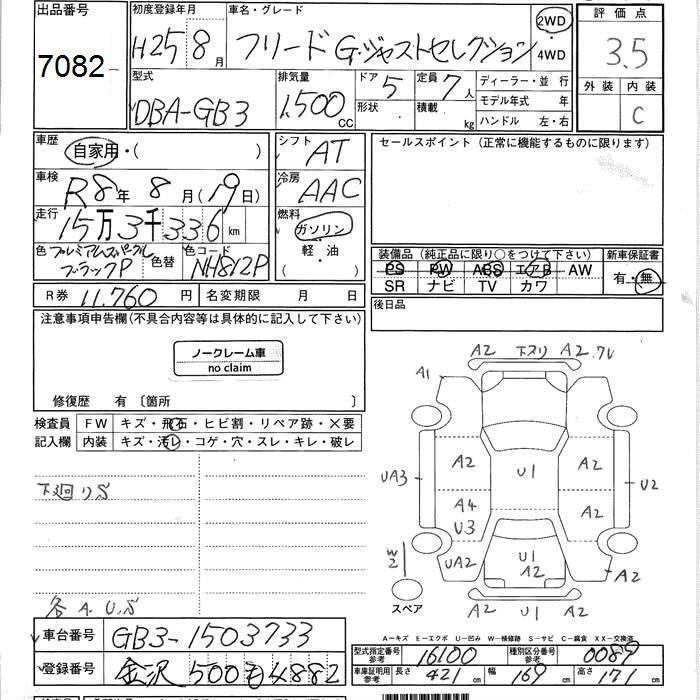 出品番号
7082
初度登録年月
H25 8月
車名・グレード
フリード G・ジャストセレクション
2WD
・
4WD
評価点
3.5
外装 内装
C
型式
DBA-GB3
排気量
1,500
CC
ドア 5
形状
定員 7人
積載 kg
ディーラー・並行
モデル年式 年
ハンドル 左・右
車歴
自家用・( )
シフト
AT
セールスポイント(正常に機能するものに限ります)
車検
R8年 8月(19日)
冷房
AAC
走行
15万3千336km
燃料
ガソリン
軽・油
( )
色 プレミアムスパークル
ブラックP
色替
色コード
NH812P
装備品(純正品に限り○をつけて下さい)
PS PW ABS エアB AW
SR ナビ TV カワ
新車保証書
有・無
R券 11,760円
名変期限 月 日
後日品
注意事項申告欄(不具合内容等は具体的に記入して下さい)
ノークレーム車
no claim
修復歴 有〔箇所 〕
検査員
記入欄
FW キズ・飛石・ヒビ割・リペア跡・×要
内装 キズ・汚レ・コゲ・穴・スレ・キレ・破レ
下廻りS
各A.U.S
A2 下スリ A2.7U
A1
A2 U1 A2
UA3 U2
A4 A2
U3
UA2 U1 A2
A2
W2
スペア
A2 U1 A2
A-キズ E-エクボ U-凹み W-補修跡 S-サビ C-腐食 XX-交換済
車台番号 GB3-1503733
登録番号 金沢 500 も 4882
型式指定番号
参考
16100
種別区分番号
参考
0089
車庫証明用
参考
長さ 421cm
幅 169cm
高さ 171cm